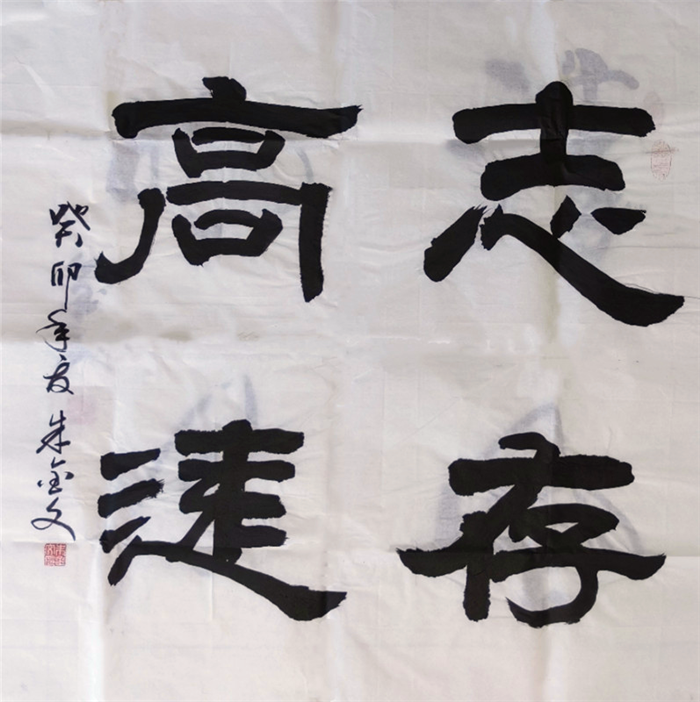 志存
高遠
癸卯年夏朱金文